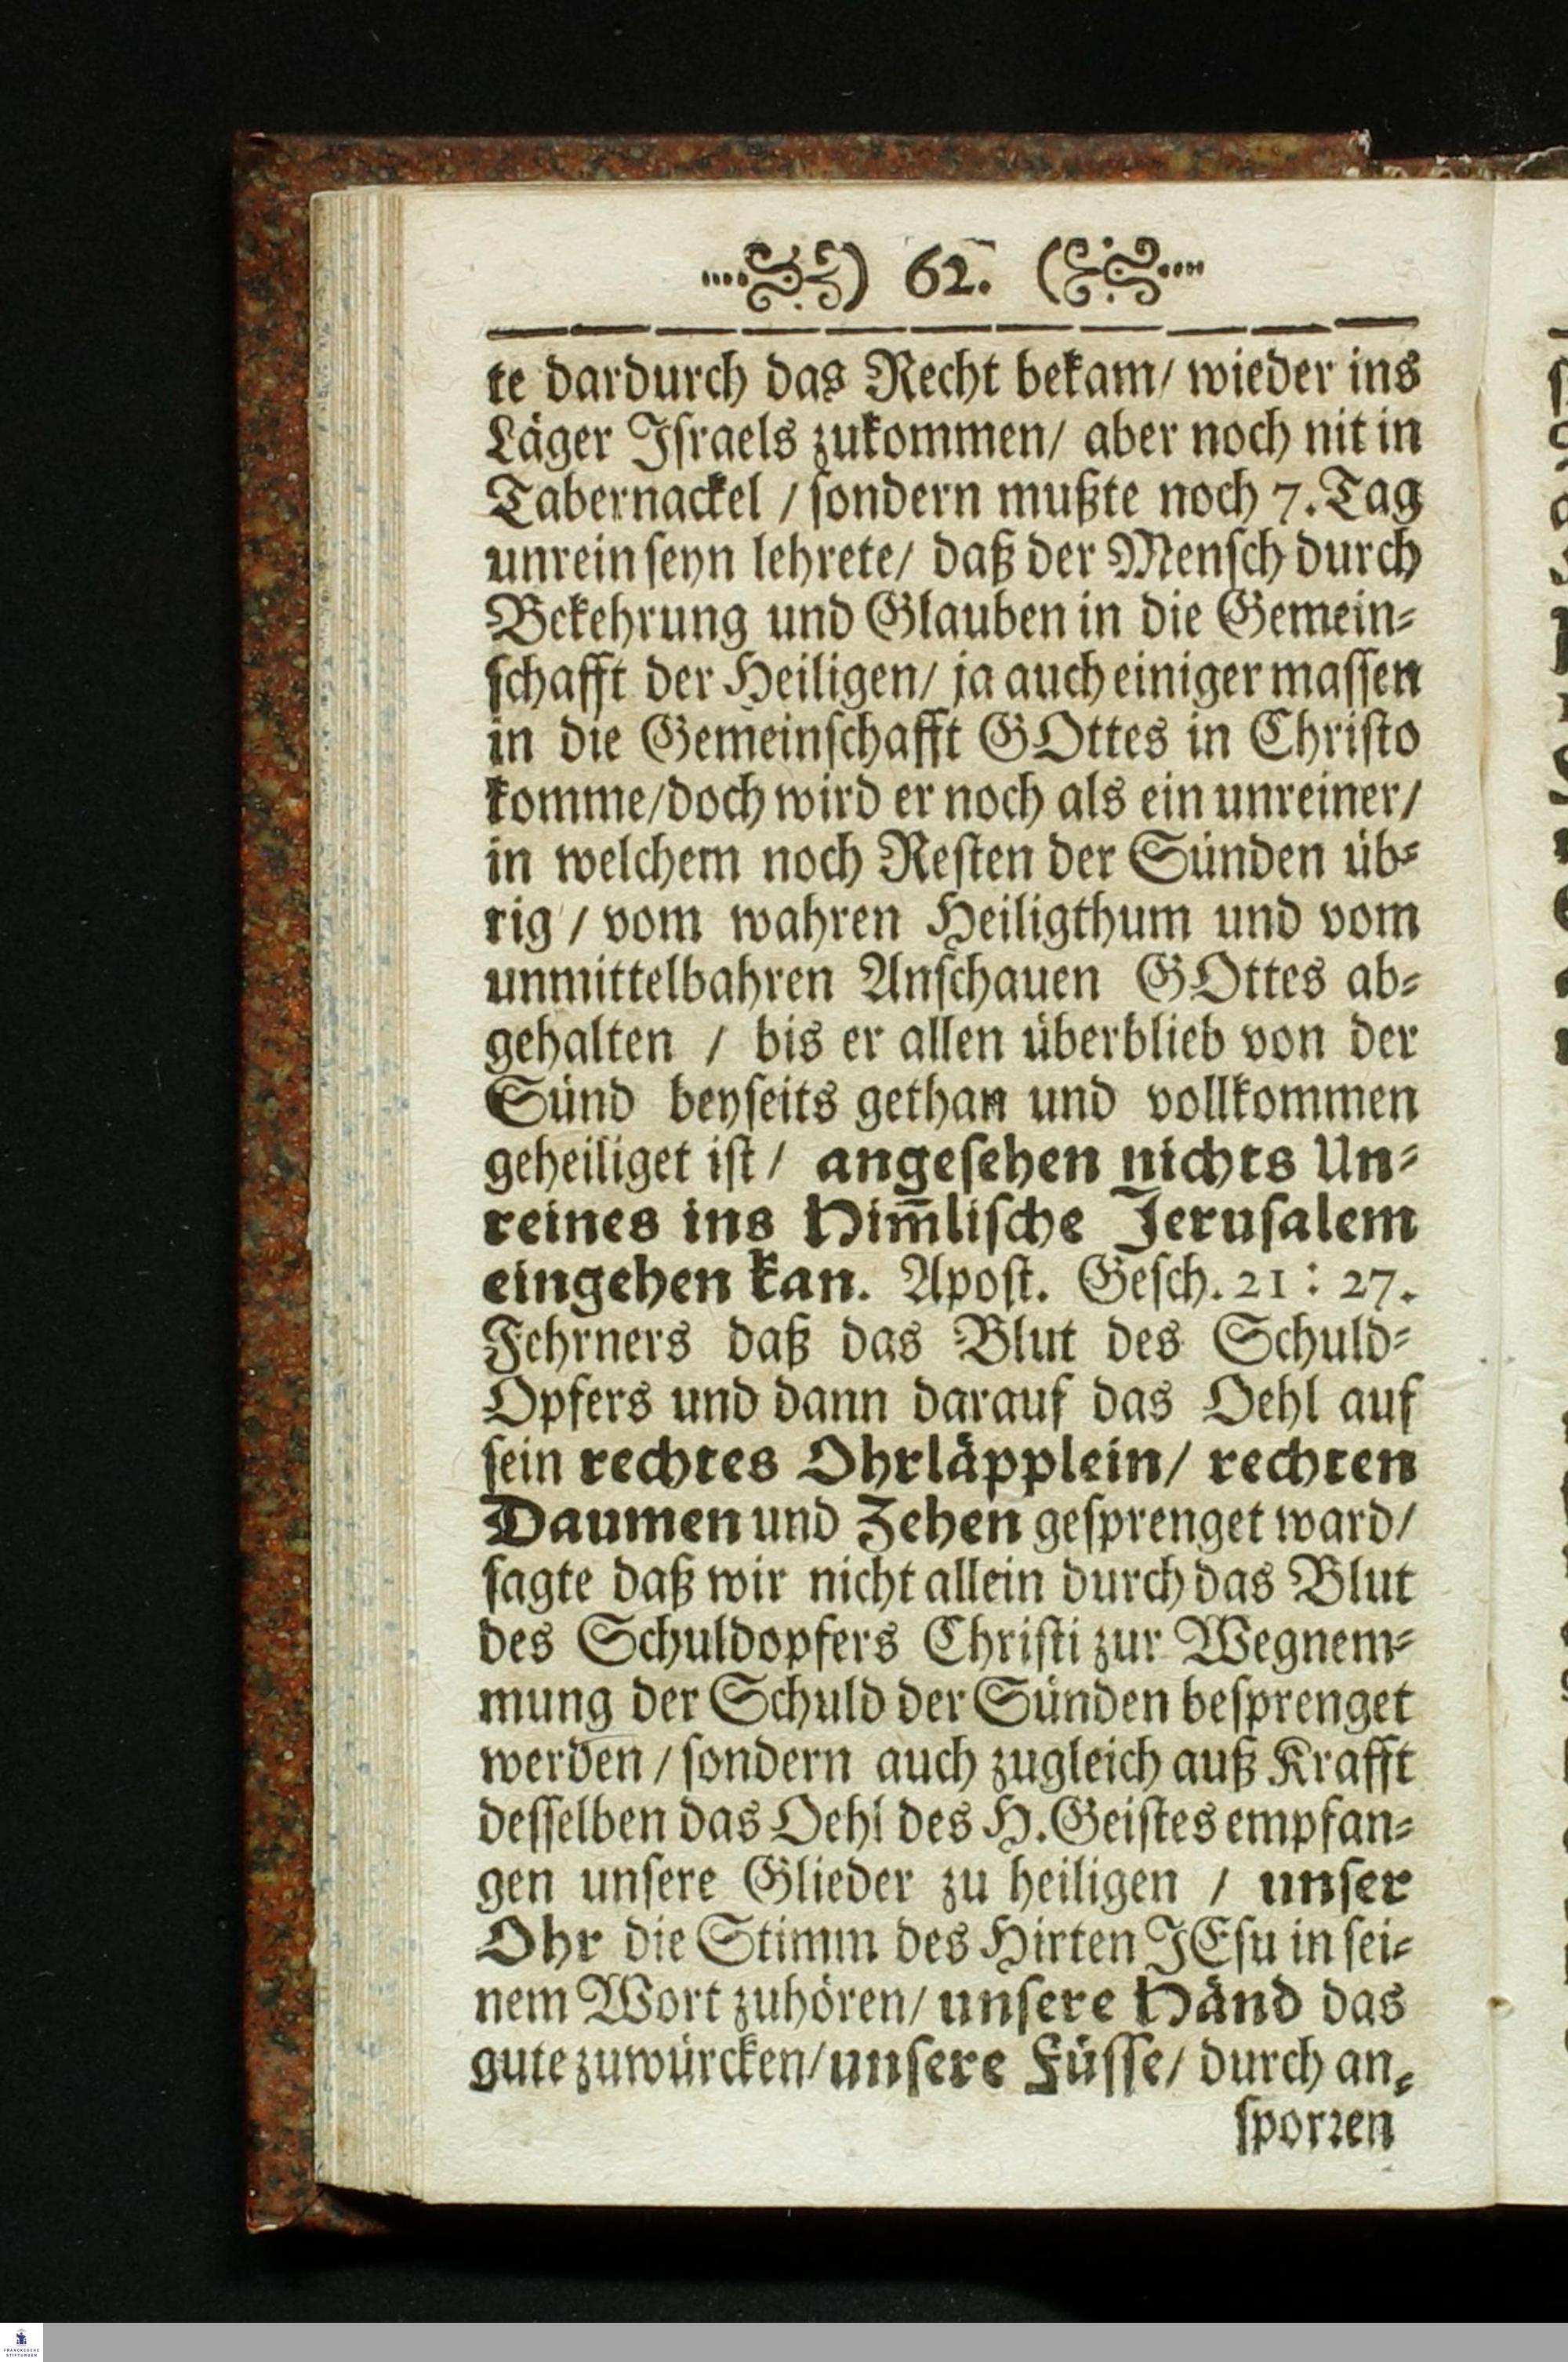 ) 62. (
te dardurch das Recht bekam/ wieder ins
Läger Iſraels zukommen/ aber noch nit in
Tabernackel / ſondern mußte noch 7. Tag
unrein ſeyn lehrete/ daß der Menſch durch
Bekehrung und Glauben in die Gemein⸗
ſchafft der Heiligen/ ja auch einiger maſſen
in die Gemeinſchafft GOttes in Chriſto
komme/doch wird er noch als ein unreiner/
in welchem noch Reſten der Sünden üb⸗
rig / vom wahren Heiligthum und vom
unmittelbahren Anſchauen GOttes ab⸗
gehalten / bis er allen überblieb von der
Sünd beyſeits gethan und vollkommen
geheiliget iſt / angeſehen nichts Un⸗
reines ins Him̃liſche Jeruſalem
eingehen kan. Apoſt. Geſch. 21 : 27.
Fehrners daß das Blut des Schuld⸗
Opfers und dann darauf das Oehl auf
ſein rechtes Ohrläpplein/ rechten
Daumen und Zehen geſprenget ward/
ſagte daß wir nicht allein durch das Blut
des Schuldopfers Chriſti zur Wegnem⸗
mung der Schuld der Sünden beſprenget
werden / ſondern auch zugleich auß Krafft
deſſelben das Oehl des H. Geiſtes empfan⸗
gen unſere Glieder zu heiligen / unſer
Ohr die Stimm des Hirten JEſu in ſei⸗
nem Wort zuhören/ unſere Händ das
gute zuwürcken/ unſere Füſſe/ durch an⸗
ſporꝛen
FRANCKESCHE
STIFTUNGEN